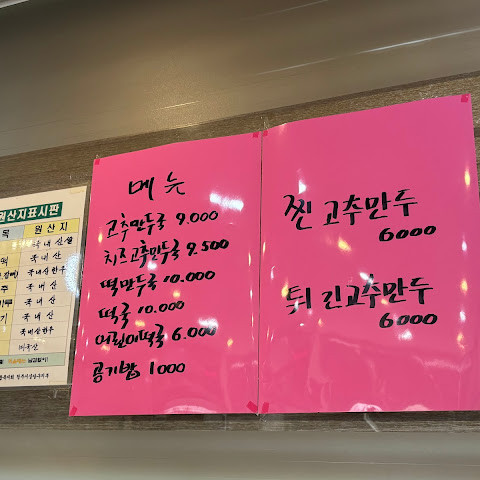 원산지표시판
목 원산지
국내산쌀
떡 국내산
국내산한우
주 국내산
국내산
기 국내산
국내산한우
메뉴
고추만두국 9.000
치즈고추만두국 9.500
떡만두국 10.000
떡국 10.000
어린이떡국 6.000
공기밥 1000
찐고추만두
6000
튀긴고추만두
6000